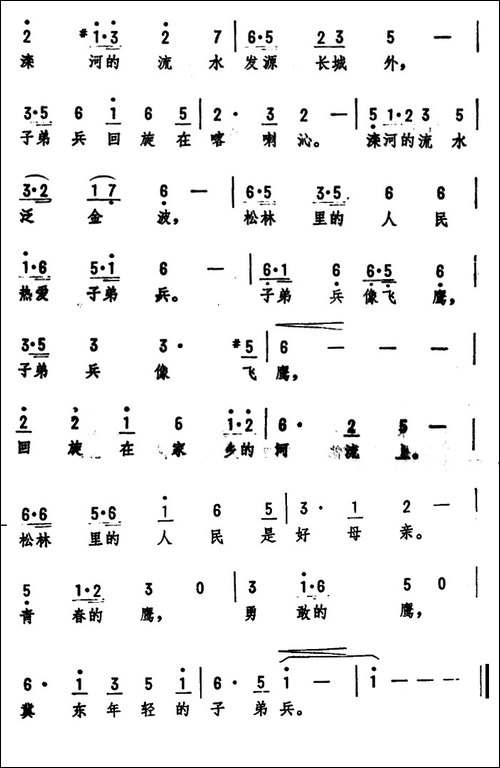 2 #1·3 2 7 | 6·5 2 3 5 — |
滦 河的 流 水 发源 长城 外,
3·5 6 1 6 5 | 2· 3 2 — |
子弟 兵 回 旋 在 喀 喇 沁。
5 1·2 3 5
滦 河的 流 水
3·2 1 7 6 — | 6·5 3·5 6 6
泛 金 波, 松林 里的 人 民
1·6 5·1 6 — | 6·1 6 6·5 6
热爱 子弟 兵。 子弟 兵 像飞 鹰,
3·5 3 3· #5 | 6 — — —
子弟 兵 像 飞 鹰,
2 2 1 6 1·2 | 6· 2 5 — |
回 旋 在 家 乡的 河 流 上。
6·6 5·6 1 6 5 | 3· 1 2 — |
松林 里的 人 民 是 好 母 亲。
5 1·2 3 0 | 3 1·6 5 0 |
青 春的 鹰, 勇 敢的 鹰,
6· 1 3 5 1 | 6· 5 1 — | 1 — — — ‖
冀 东 年 轻 的 子 弟 兵。